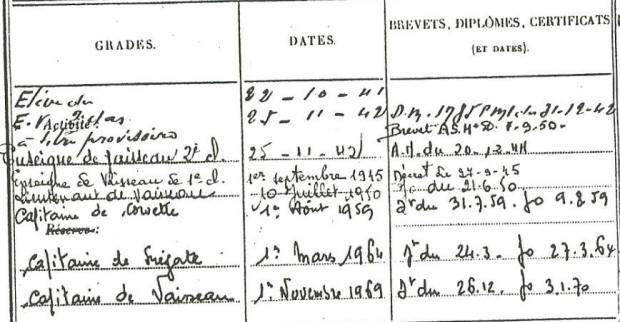 GRADES. DATES. BREVETS, DIPLÔMES, CERTIFICATS
(ET DATES).
Elève du 22 - 10 - 41
E. V. 2e 25 - 11 - 42 D.M. 1785 31-12-42
Activité:
à titre provisoire Brevet 8-9-50-
Enseigne de Vaisseau 2e cl. 25-11-42 du 20.12.44
Enseigne de Vaisseau de 1e cl. 1er septembre 1945 Décret du 27-9-45
Lieutenant de Vaisseau 10 Juillet 1950 du 21.6.50
Capitaine de Corvette 1er Août 1959 du 31.7.59. Jo 9.8.59
Réserve:
Capitaine de Frégate 1er Mars 1964 du 24.3. Jo 27.3.64
Capitaine de Vaisseau 1er Novembre 1969 du 26.12. Jo 3.1.70